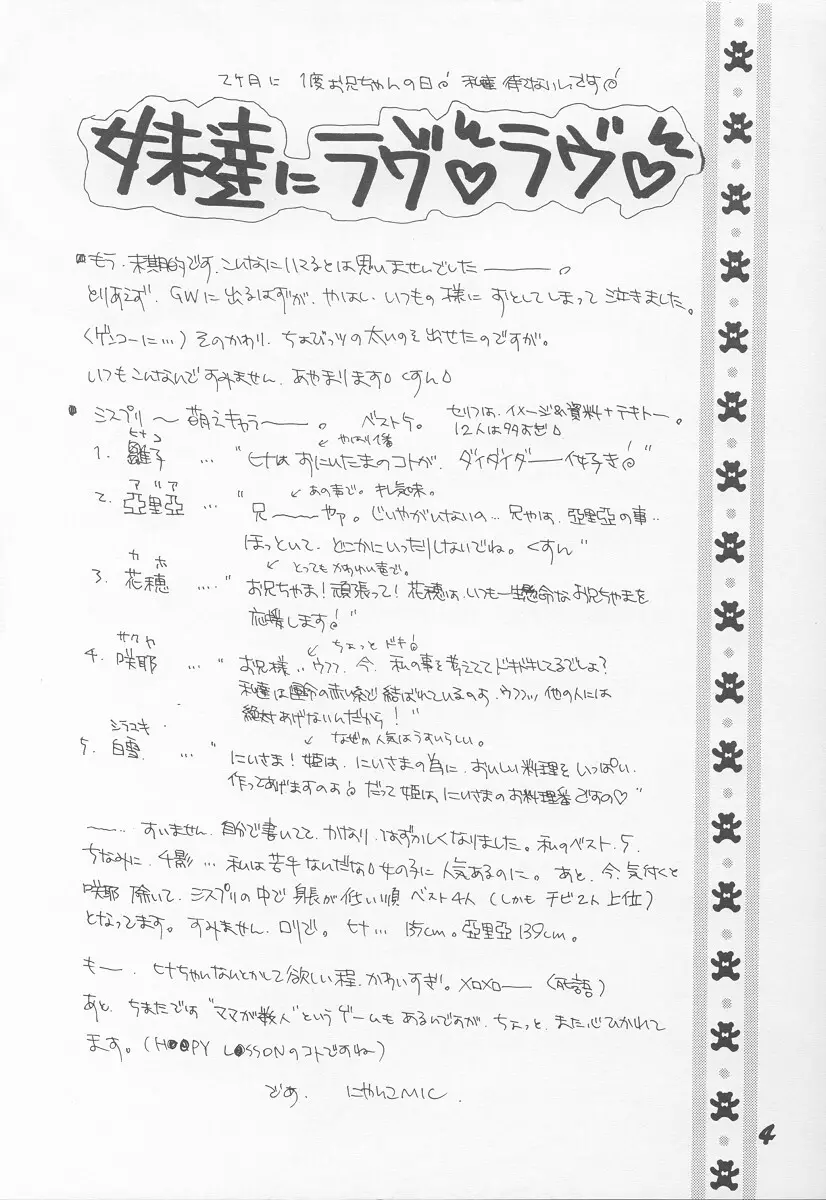 2ヶ月に 1度お兄ちゃんの日 私達 待てないんです
妹達にラヴ♡ラヴ♡
もう、末期的です。こんなに いてるとは思いませんでした———。
とりあえず、GWに出るはずが、やはし、いつもの様に おとしてしまって泣きました。
(ゲンコーに…) そのかわり、ちょびっツの太いのを出せたのですが。
いつもこんなんですみません、あやまります。くすん。
シスプリ 〜 萌えキャラ———。 ベスト5。 セリフは、イメージ&資料+テキトー。
12人は多すぎ。
ヒナコ ↙やはり1番
1. 雛子 … "ヒナは おにいたまのコトが、ダイダイダーイ好き"
アリア ↙あの声で。 オレ気味。
2. 亞里亞 … "兄———やァ。じいやがいけないの… 兄やは、亞里亞の事…
ほっといて、どこかにいったりしないでね。くすん"
カホ ↙とってもかわいい声で。
3. 花穂 …. "お兄ちゃま!頑張って! 花穂は、いつも一生懸命なお兄ちゃまを
応援します"
サクヤ ↙ちょっと ドキ
4. 咲耶 … "お兄様…ウフフ、今、私の事を考えててドキドキしてるでしょ?
私達は運命の赤い糸で 結ばれているのよ、ウフフッ 他の人には
絶対あげないんだから!"
シラユキ ↙なぜか人気はうすいらしい。
5. 白雪 … "にいさま! 姫は、にいさまの為に、おいしい料理を いっぱい、
作ってあげますのよ だって 姫は、にいさまのお料理番ですの♡"
——… すいません、自分で書いてて、かなり、はずかしくなりました。私のベスト、5。
ちなみに、千影… 私は苦手なんだな。女の子に人気あるのに。あと、今、気付くと
咲耶 除いて、シスプリの中で 身長が低い順 ベスト4人 (しかも チビ2人 上位)
となってます。すみません、ロリで。ヒナ… 135cm。亞里亞 139cm。
もー、ヒナちゃいないとかして欲しい程、かわいすぎ。メロメロー (死語)
あと、ちまたでは "ママが数人"というゲームも あるんですが、ちょっと、また心ひかれて
ます。(H●●PY L●SSONのコトですね)
であ、 にゃんこMIC.
4